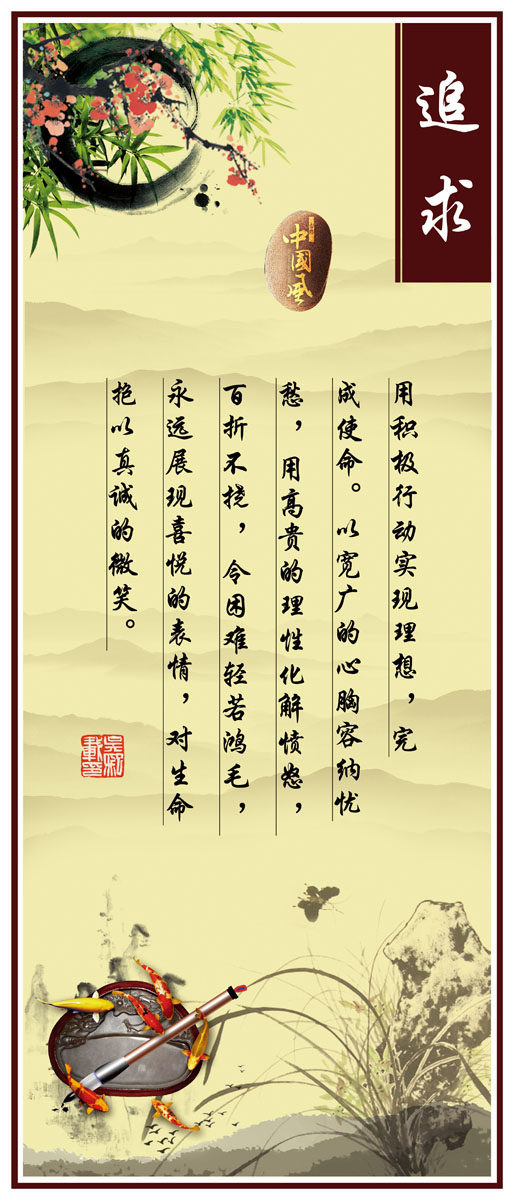 追求
中国风
用积极行动实现理想，完
成使命。以宽广的心胸容纳忧
愁，用高贵的理性化解愤怒，
百折不挠，令困难轻若鸿毛，
永远展现喜悦的表情，对生命
抱以真诚的微笑。